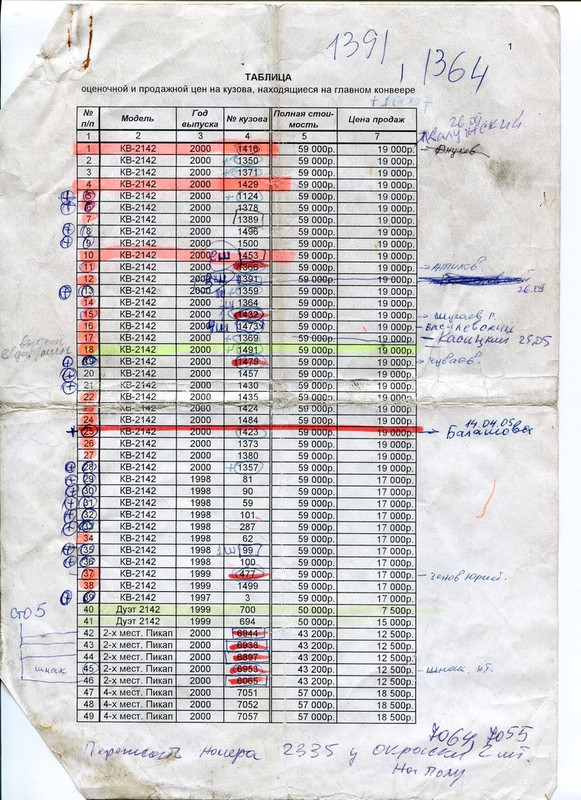 1391, 1364
1
ТАБЛИЦА
оценочной и продажной цен на кузова, находящиеся на главном конвеере
26.09
Калужский
№ п/п Модель Год выпуска № кузова Полная стои-мость Цена продаж
1 2 3 4 5 7
1 КВ-2142 2000 1416 59 000р. 19 000р.
2 КВ-2142 2000 1350 59 000р. 19 000р.
3 КВ-2142 2000 1371 59 000р. 19 000р.
4 КВ-2142 2000 1429 59 000р. 19 000р.
5 КВ-2142 2000 1124 59 000р. 19 000р.
6 КВ-2142 2000 1378 59 000р. 19 000р.
7 КВ-2142 2000 1389 59 000р. 19 000р.
8 КВ-2142 2000 1496 59 000р. 19 000р.
9 КВ-2142 2000 1500 59 000р. 19 000р.
10 КВ-2142 2000 1453 59 000р. 19 000р.
11 КВ-2142 2000 1366 59 000р. 19 000р.
12 КВ-2142 2000 1391 59 000р. 19 000р. 26.09
13 КВ-2142 2000 1359 59 000р. 19 000р.
14 КВ-2142 2000 1364 59 000р. 19 000р.
15 КВ-2142 2000 1432 59 000р. 19 000р.
16 КВ-2142 2000 1473 59 000р. 19 000р. Василевский
17 КВ-2142 2000 1369 59 000р. 19 000р. Касицкий 25.05
18 КВ-2142 2000 1491 59 000р. 19 000р.
19 КВ-2142 2000 1479 59 000р. 19 000р. Чуваев
20 КВ-2142 2000 1457 59 000р. 19 000р.
21 КВ-2142 2000 1430 59 000р. 19 000р.
22 КВ-2142 2000 1435 59 000р. 19 000р.
23 КВ-2142 2000 1424 59 000р. 19 000р.
24 КВ-2142 2000 1484 59 000р. 19 000р. 14.04.05
25 КВ-2142 2000 1423 59 000р. 19 000р. Балашовы
26 КВ-2142 2000 1373 59 000р. 19 000р.
27 КВ-2142 2000 1380 59 000р. 19 000р.
28 КВ-2142 2000 1357 59 000р. 19 000р.
29 КВ-2142 1998 81 59 000р. 17 000р.
30 КВ-2142 1998 90 59 000р. 17 000р.
31 КВ-2142 1998 59 59 000р. 17 000р.
32 КВ-2142 1998 101 59 000р. 17 000р.
33 КВ-2142 1998 287 59 000р. 17 000р.
34 КВ-2142 1998 62 59 000р. 17 000р.
35 КВ-2142 1998 99 59 000р. 17 000р.
36 КВ-2142 1998 100 59 000р. 17 000р.
37 КВ-2142 1999 477 59 000р. 17 000р.
38 КВ-2142 1999 1499 59 000р. 17 000р.
39 КВ-2142 1999 3 59 000р. 17 000р.
40 Дуэт 2142 1999 700 50 000р. 7 500р.
41 Дуэт 2142 1999 694 50 000р. 15 000р.
сто 5
42 2-х мест. Пикап 2000 6944 43 200р. 12 500р.
43 2-х мест. Пикап 2000 6938 43 200р. 12 500р.
44 2-х мест. Пикап 2000 6897 43 200р. 12 500р.
шпак
45 2-х мест. Пикап 2000 6953 43 200р. 12 500р.
46 2-х мест. Пикап 2000 6065 43 200р. 12 500р.
47 4-х мест. Пикап 2000 7051 57 000р. 18 500р.
48 4-х мест. Пикап 2000 7052 57 000р. 18 500р.
49 4-х мест. Пикап 2000 7057 57 000р. 18 500р.
7064 7055
номера 2335 у окраски 2 шт.
На полу